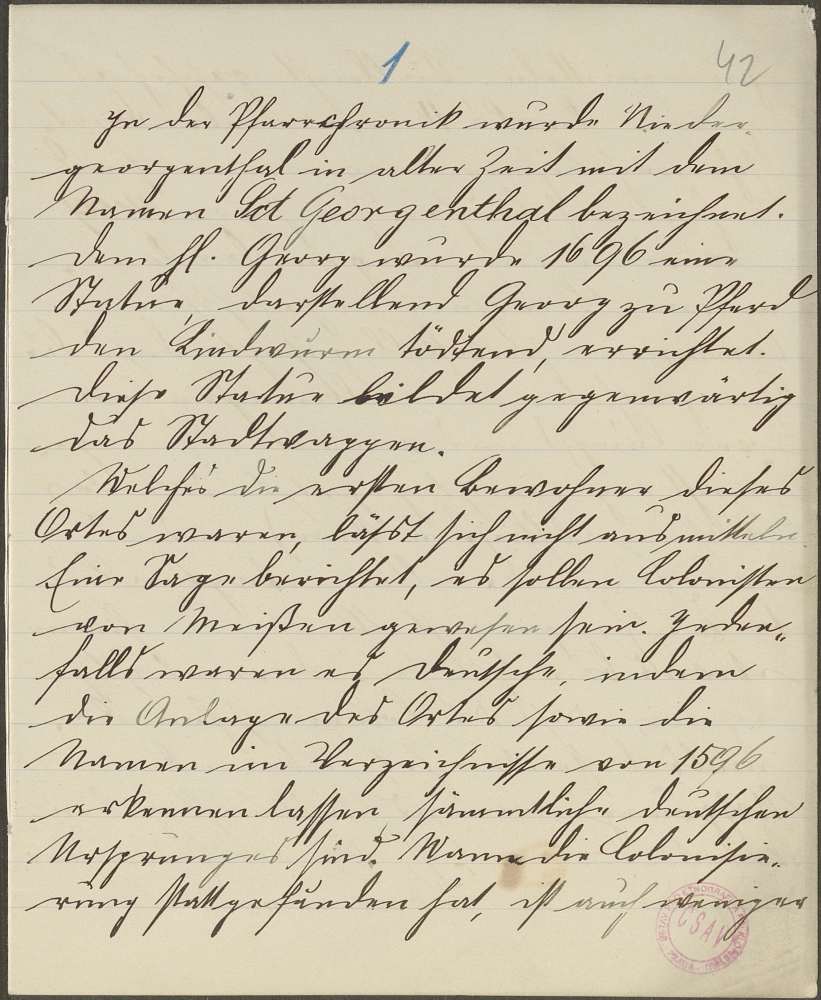 1
42
In der Pfarrchronik wurde Nieder-
georgenthal in alter Zeit mit dem
Namen Sct Georgenthal bezeichnet.
Dem hl. Georg wurde 1696 eine
Statue, darstellend Georg zu Pferd
den Lindwurm tödtend, errichtet.
Diese Statue bildet gegenwärtig
das Stadtwappen.
Welches die ersten Bewohner dieses
Ortes waren, läßt sich nicht ausmitteln.
Eine Sage berichtet, es sollen Colonisten
von Meißen gewesen sein. Jeden-
falls waren es Deutsche, indem
die Anlage des Ortes sowie die
Namen im Verzeichnisse von 1596
erkennen lassen, sämmtliche deutschen
Ursprunges sind. Wann die Colonisie-
rung stattgefunden hat, ist auch weniger
ČSAV